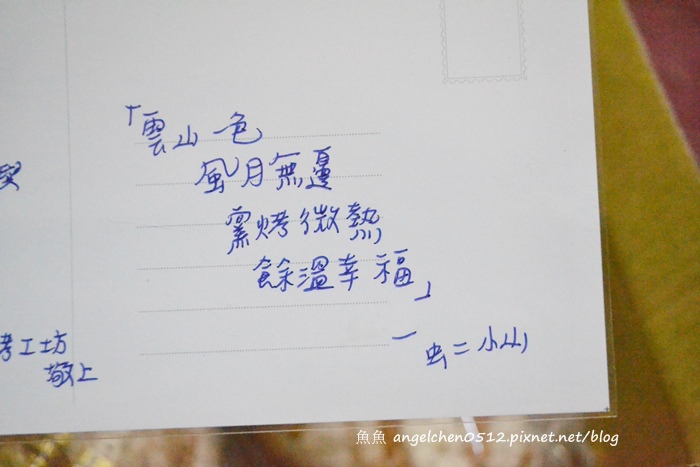 「雲山一色
風月無邊
窯烤微熱
餘溫幸福」
— 虫二小山
考工坊
敬上
魚魚 angelchen0512.pixnet.net/blog